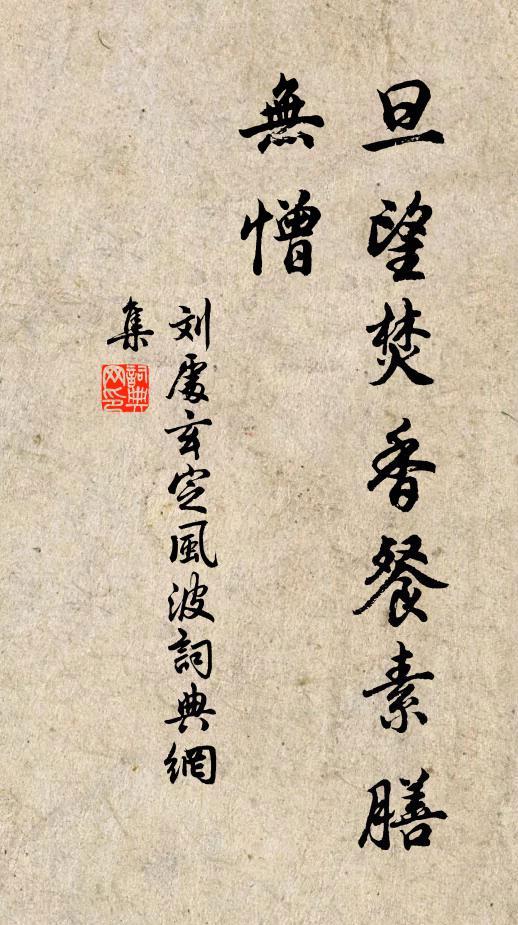 旦望焚香餐素膳
無憎
刘處玄定風波詞典網
集
詞典
网印